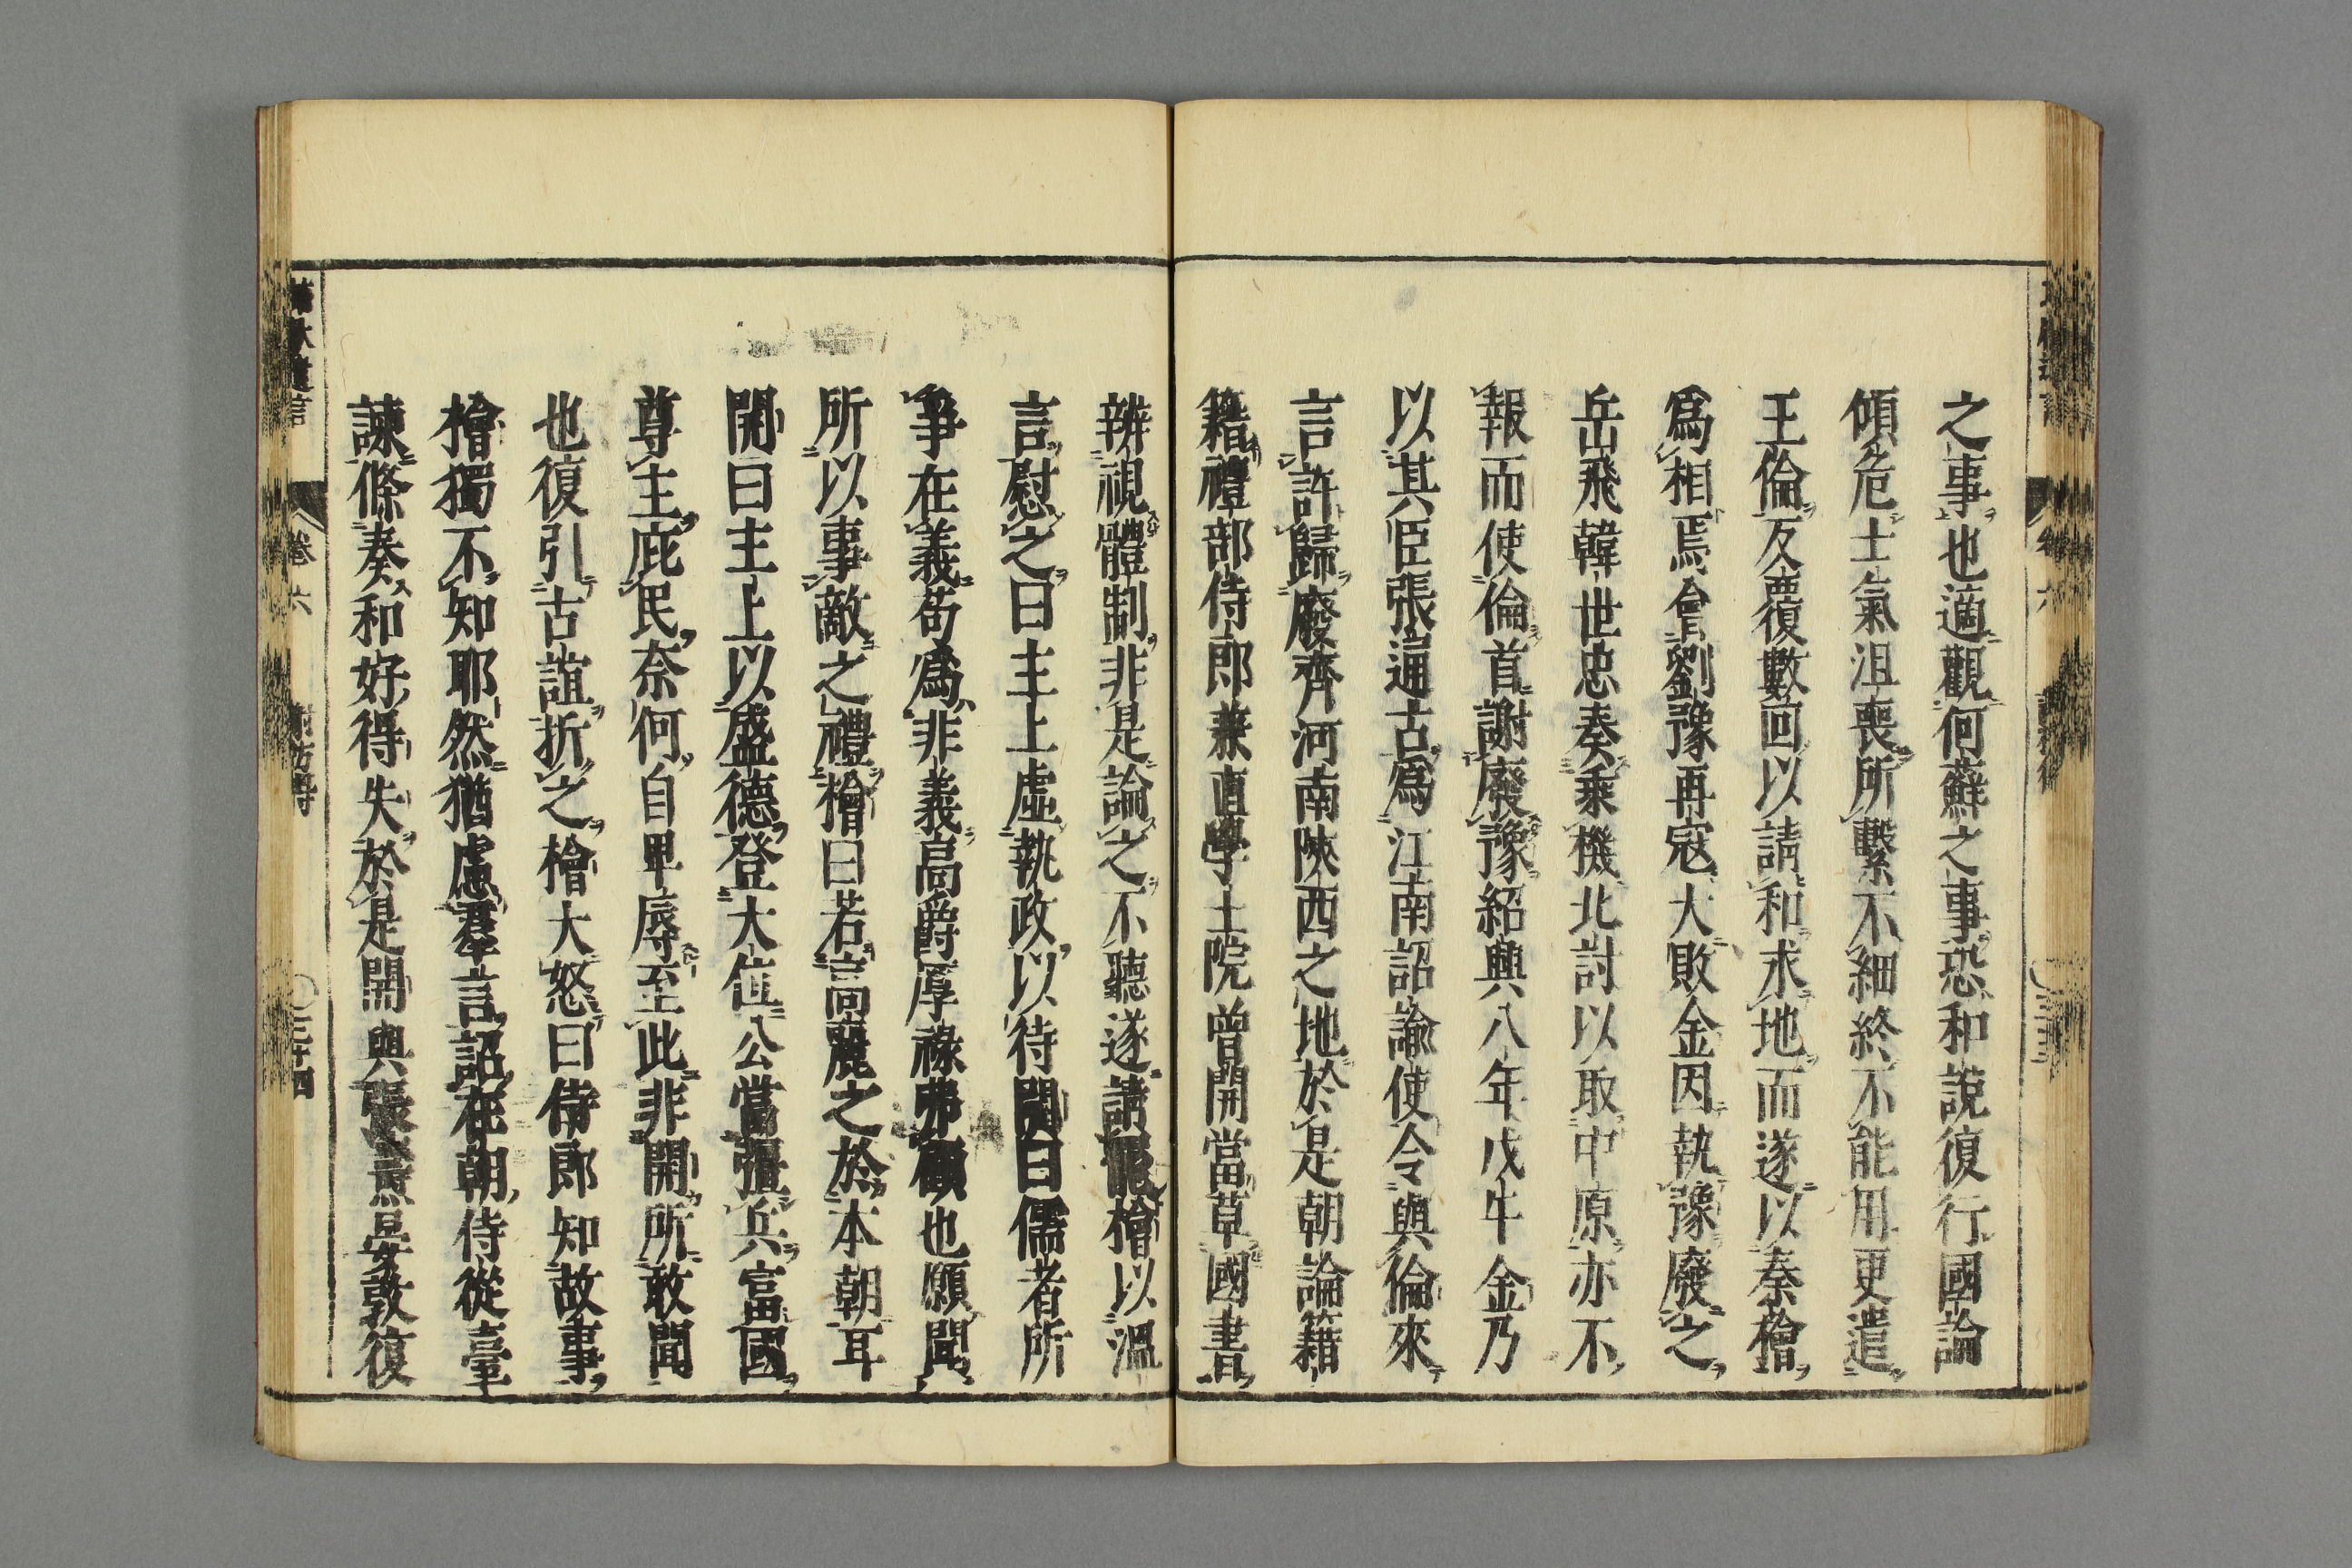 之事也適觀何蘚之事恐和說復行國論
傾危士氣沮喪所繫不細終不能用更遣
王倫反覆數回以請和求地而遂以秦檜
爲相焉會劉豫再寇大敗金因執豫廢之
岳飛韓世忠奏乘機北討以取中原亦不
報而使倫首謝廢豫紹興八年戊午金乃
以其臣張通古爲江南詔諭使令與倫來
言許歸廢齊河南陝西之地於是朝論籍
籍禮部侍郎兼直學士院曾開當草國書
辨視體制非是論之不聽遂請罷檜以溫
言慰之曰主上虛執政以待開曰儒者所
爭在義苟爲非義高爵厚祿弗顧也願聞
所以事敵之禮檜曰若高麗之於本朝耳
開曰主上以盛德登大位公當彊兵富國
尊主庇民奈何自卑辱至此非開所敢聞
也復引古誼折之檜大怒曰侍郎知故事
檜獨不知耶然猶慮羣言詔在朝侍從臺
諫條奏和好得失於是開與張燾晏敦復
卷六
三十四